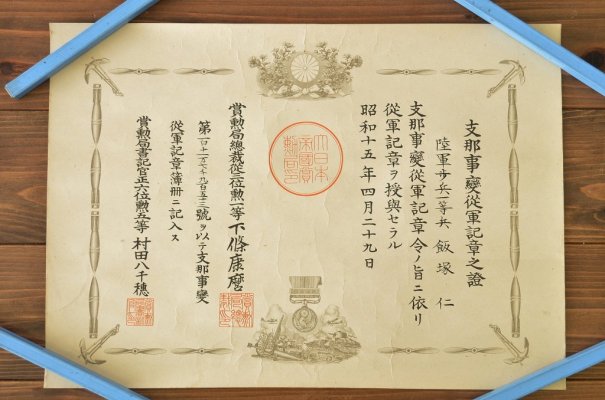 支那事變從軍記章之證
陸軍歩兵一等兵 飯塚 仁
支那事變從軍記章令ノ旨ニ依リ
從軍記章ヲ授與セラル
昭和十五年四月二十九日
大日本
帝國賞
勲局印
賞勲局總裁從三位勲一等下條康麿
號ヲ以テ支那事變
從軍記章簿册ニ記入ス
賞勲局書記官正六位勲五等 村田八千穂